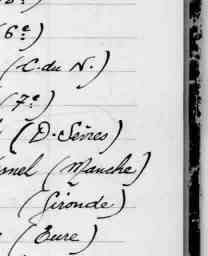 (6e)
(C. du N.)
(7e)
(D. Sèvres)
(Manche)
(Gironde)
(Eure)